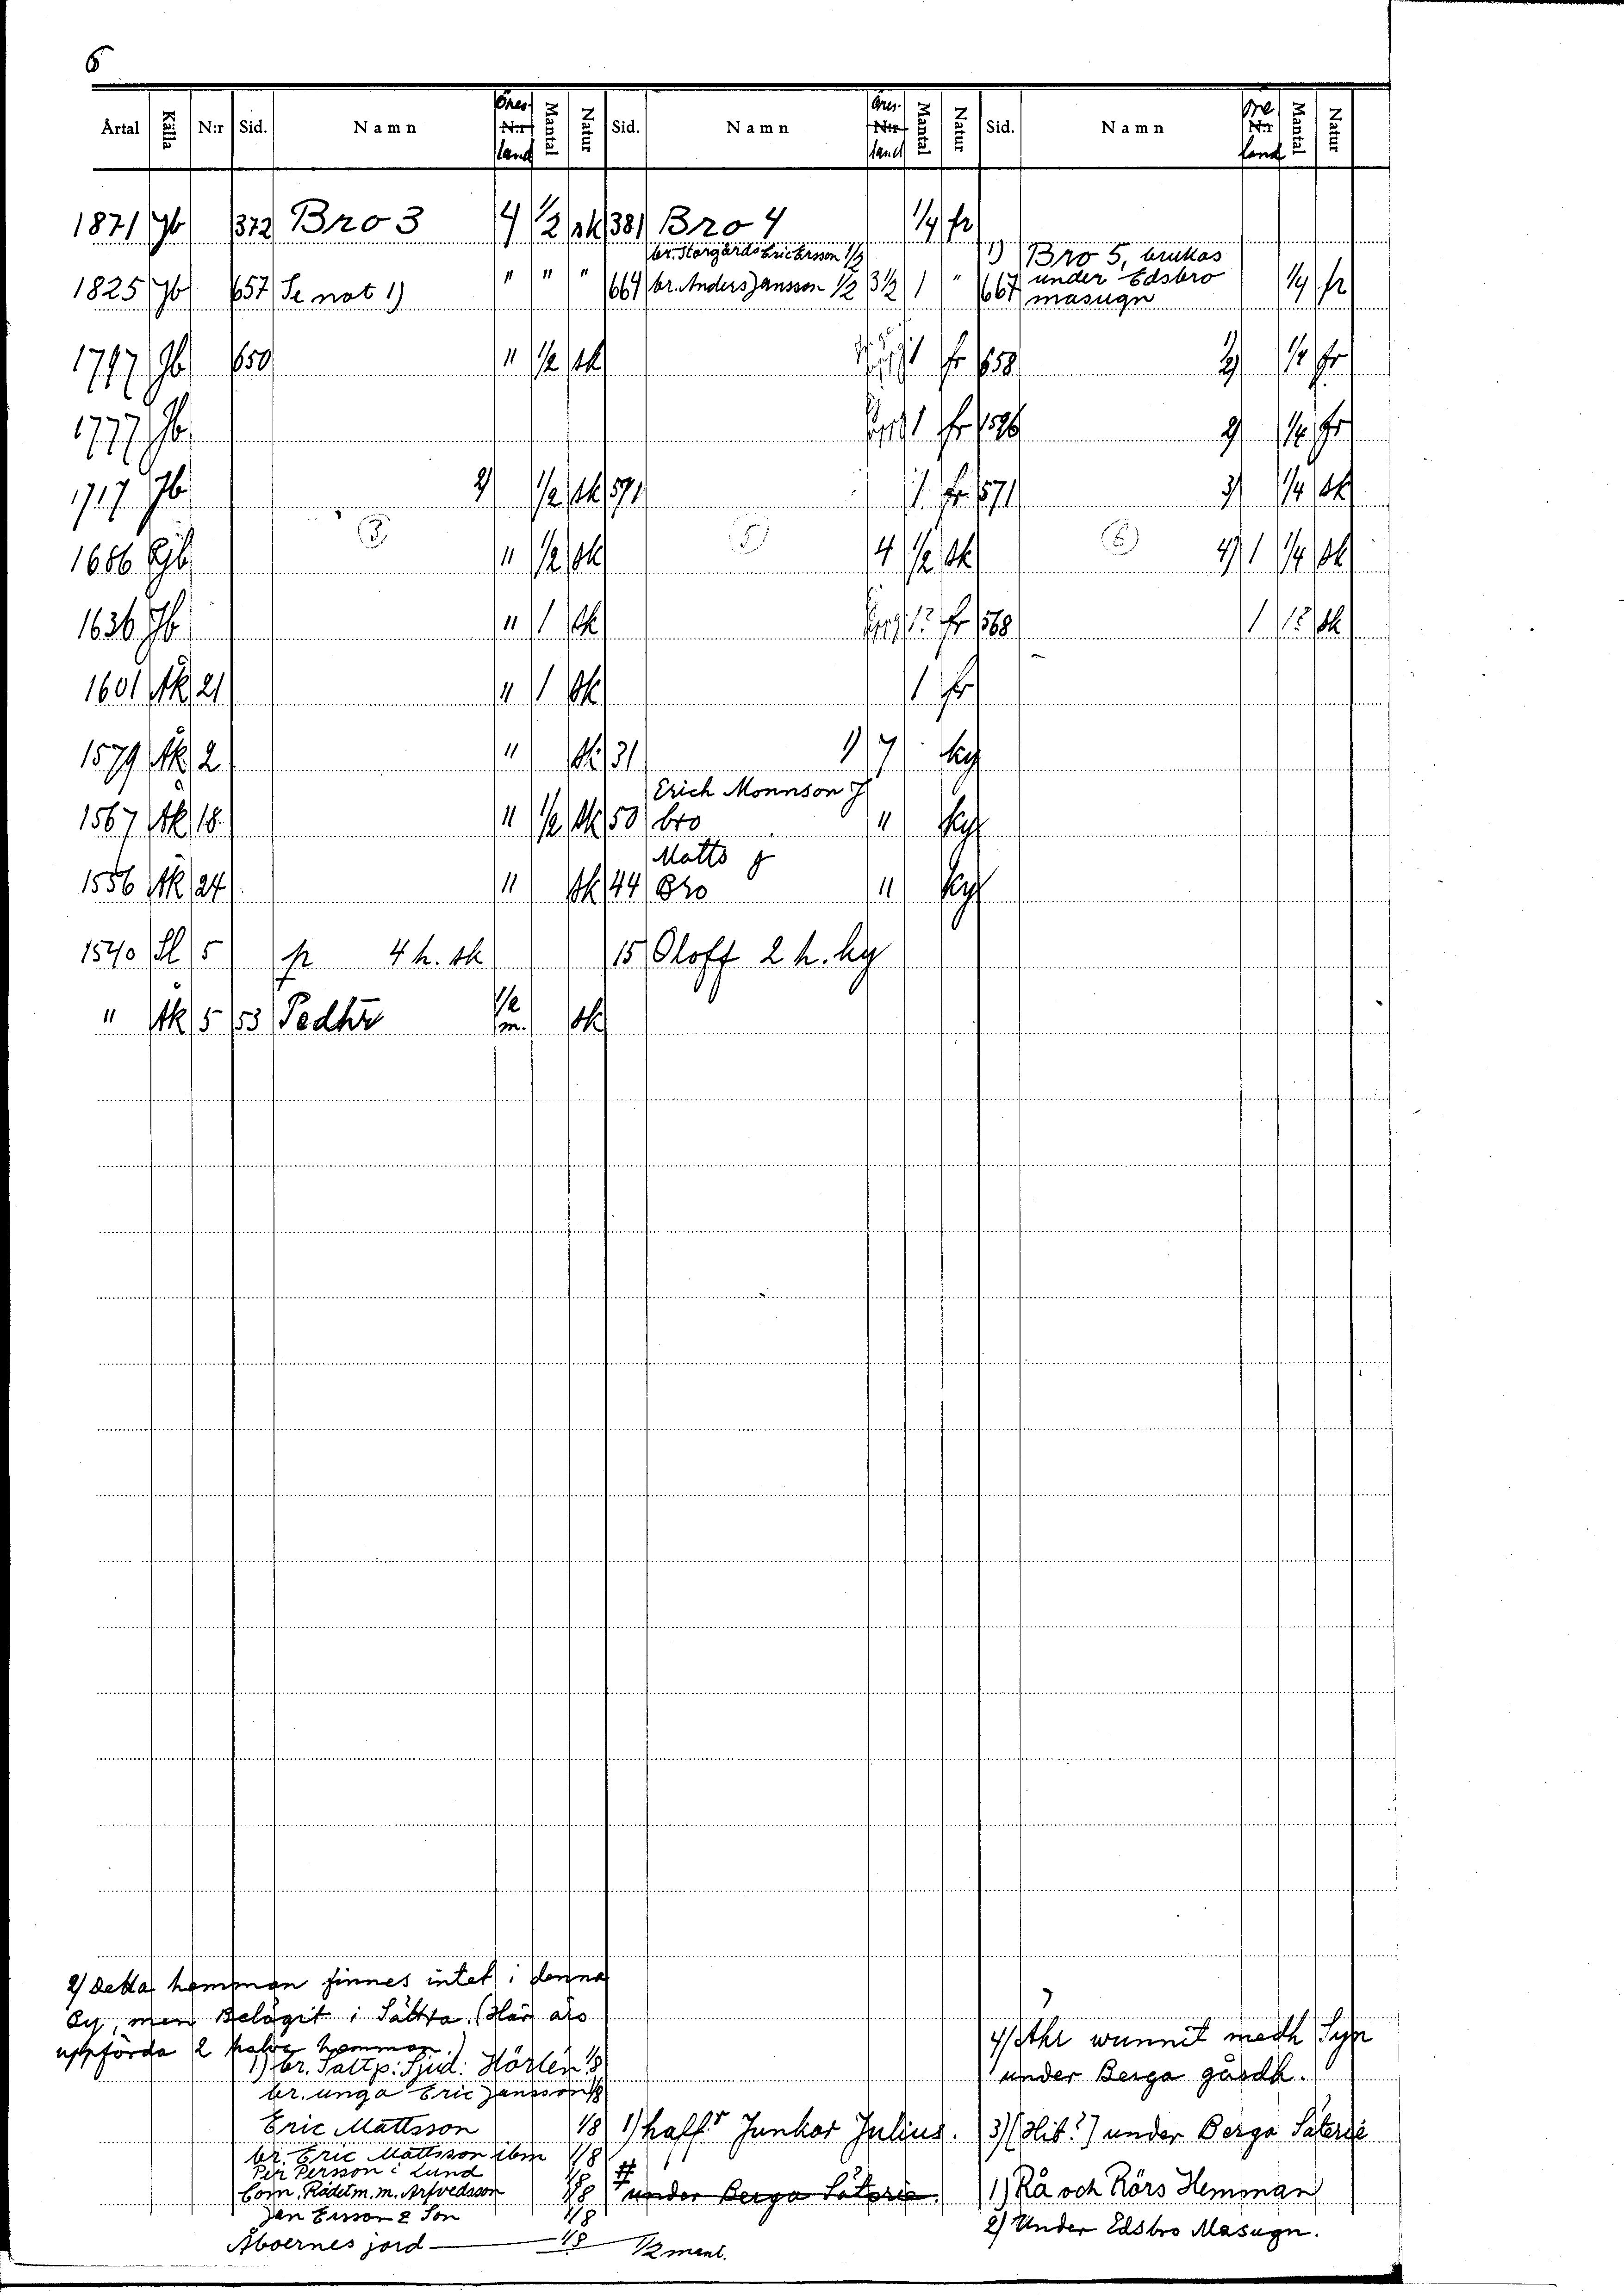 6
Årtal Källa N:r Sid. Namn Öres N:r land Mantal Natur Sid. Namn Öres N:r land Mantal Natur Sid. Namn Öre N:r land Mantal Natur
1871 Jb 372 Bro 3 4 1/2 sk 381 Bro 4 1/4 fr
br. Storgårds Eric Ersson 1/2 1) Bro 5, brukas
1825 Jb 657 Se not 1) " " " 661 br. Anders Jansson 1/2 3 1/2 1 " 667 under Edsbro 1/4 fr
masugn
1747 Jb 650 " 1/2 sk 1 fr 658 2) 1/4 fr
1777 Jb 1 fr 596 2) 1/4 fr
1717 Jb 2) 1/2 sk 571 1 fr 571 3) 1/4 sk
1686 Jb (3) " 1/2 sk (5) 4 1/2 sk (6) 4) 1 1/4 sk
1636 Jb " 1 sk fr 568 1 sk
1601 Ak 21 " 1 sk 1 fr
1579 Ak 2 " sk 31 1) 7 ky
Erich Monnson J
1567 Ak 18 " 1/2 sk 50 bro " ky
Matts J
1556 Ak 24 " sk 44 Bro " ky
1540 Sl 5 p 4 h. sk 15 Oloff 2 h. ky
" Ak 5 53 Pedhr 1/2 m. sk
2) Detta hemman finnes intet i denna
By, men Belägit i Sättra. (Här äro
uppförda 2 halva hemman.)
1) br. Sattp. Sjud: Hörlén 1/8
br. unga Eric Jansson 1/8
Eric Mattsson 1/8
br. Eric Mattsson ibm 1/8
Per Persson i Lund 1/8
Com. Rådetm. m. Arfvedsson 1/8
Jan Ersson & Son 1/8
Åboernes jord 1/8 1/2 ment.
1) haffr Junkar Julius.
# under Berga Säterie.
4) Athr wunnit medh Syn
under Berga gårdh.
3) (Hit?) under Berga Säterie
1) Rå och Rörs Hemman
2) Under Edsbro Masugn.